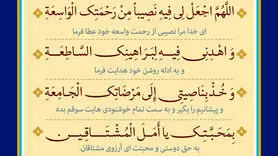 اللَّهُمَّ اجْعَلْ لِی فِیهِ نَصِیباً مِنْ رَحْمَتِکَ الْوَاسِعَةِ
ای خدا مرا نصیبی از رحمت واسعه خود عطا فرما
وَ اهْدِنِی فِیهِ لِبَرَاهِینِکَ السَّاطِعَةِ
و به ادله روشن خود هدایت فرما
وَ خُذْ بِنَاصِیَتِی إِلَى مَرْضَاتِکَ الْجَامِعَةِ
و پیشانیم را بگیر و به سمت تمام خوشنودی هایت سوقم بده
بِمَحَبَّتِکَ یَا أَمَلَ الْمُشْتَاقِینَ
به حق دوستی و محبتت ای آرزوی مشتاقان.